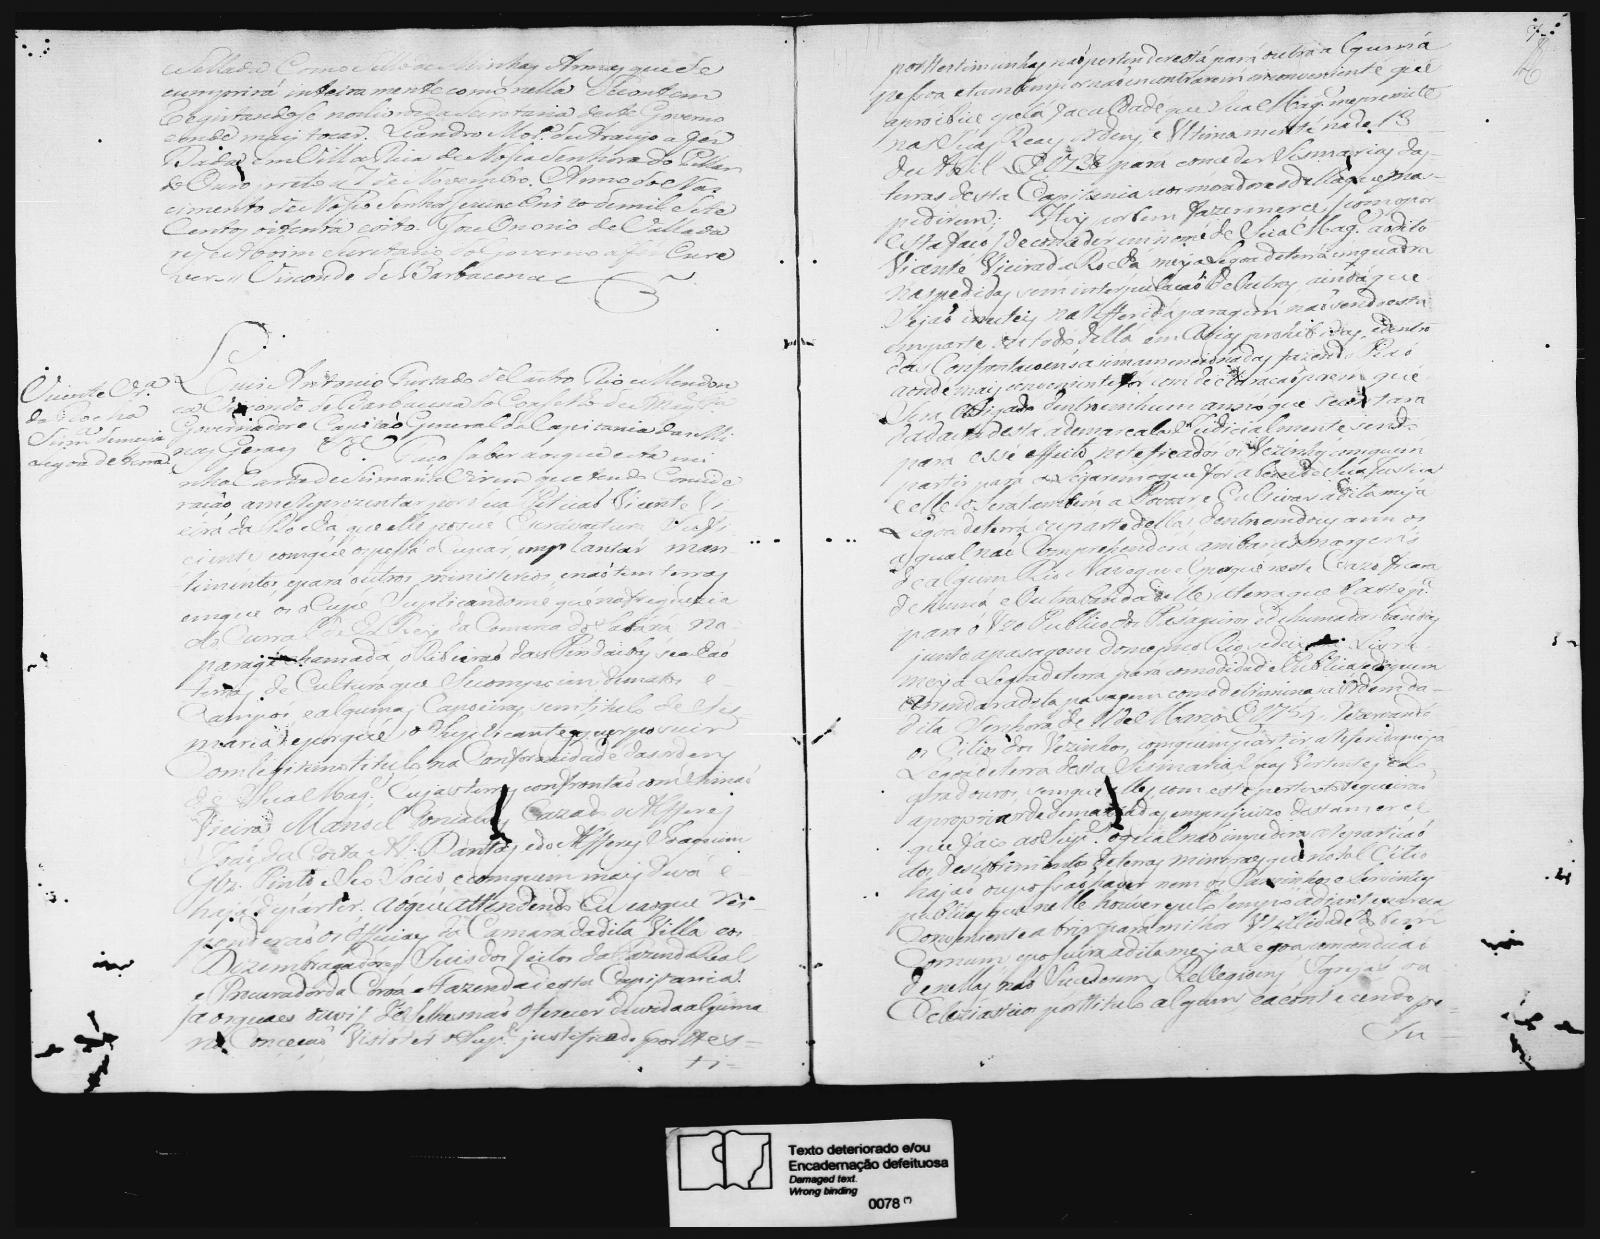 sellada Como sello de Minhas Armas que se
cumprirá inteiramente como nella Secontem
Registandose nos livros da Secretaria deste Governo
e onde mais tocar. Leandro Mo.el de Araujo a fez
Dada em Villa Rica de Nossa Senhora do Pillar
do Ouro preto a 7 de Novembro. Anno do Nas
cimento de Nosso Senhor Jesus Christo de mil Sete
Centos oitenta e oito. Joze Onorio de Vallada
res e Aboim Secretario do Governo a fes Escre
ver // Visconde de Barbacena
Vicente Vr.ª
da Rocha
Sism. de meia
Legoa de terra
Luis Antonio Furtado de Castro Rio e Mendon
ça Visconde de Barbacena do Conselho de S. Mag.
Governador e Capitão General da Capitania das Mi
nas Geraes &.ª Faço saber aos que esta mi
nha Carta de Sismaria Virem que tendo Conside
ração a me Reprezentar por sua Petição Vicente Vi
eira da Rocha, que elle possue Escravatura
ciente com que os possa ocupar em plantar man
timentos, e para outros ministerios, e não tem terras
em que os ocupe Suplicandome que na freguezia
do Curral de El Rey da Comarca do Sabará na
paragem chamada o Ribeirão das Pindaibas se achão
terras de Cultura que Secompoem de matos e
Campos, e algumas Capoeiras sem titulo de Ses
maria e porque o Supplicante as quer possuir
Com legitimo titulo na Conformidade das ordens
de Sua Mag.e Cujas terras confrontão com
Vieira Manoel Gonçalves Cazado o Alferes
Jozé da Costa Dantas, e do Alferes Joaquim
Pinto e Seo Socio e com quem mais deva e
haja de partir. Ao que attendendo Eu e ao que res-
ponderão os Officiaes da Camara da dita Villa e os
Dezembargadores Juis dos feitos da Fazenda Real
e Procurador da Coroa e Fazenda desta Capitania
(a os quaes ouvi) de Selhes não oferecer duvida alguma
na Conceção Visto ter o Sup.e justificado por tes-
ti-
por testimunhas não pertender esta para outra alguma
pessoa e tambem por não encontrarem inconveniente que
a proibice pela faculdade que Sua Mag.e me premite
nas Suas Reaes ordens, e Ultimamente na de 13
de Abril de 1738 para conceder Sismarias das
terras desta Capitania aos moradores della que mas
pedirem: Hey por bem fazer merce (como por
esta faço) de conceder em nome de Sua Mag.e ao dito
Vicente Vieira da Rocha meya Legoa de terra em quadra
nas pedidas sem interpulação de outras, ainda que
sejão inuteis na Refferida paragem não sendo esta
em parte ou todo della em Areas prohibidas, e dentro
das Confrontaçoens a sima mencionadas fazendo Pião
aonde mais conveniente for com declaração porem que
Sera obrigado dentro em hum anno que Se contara
da data desta a demarcala Judicialmente sendo
para esse effeito noteficados os Vezinhos com quem
partir para a legarem o que for a bem de Sua Justiça
e elle o sera tambem a Povoar e Cultivar a dita meya
Legoa de terra ou parte della dentro em dous annos
a qual não Comprehenderá ambas as margens
de algum Rio Navegavel porque neste Cazo ficara
de huma e Outra banda delle, a terra que baste p.ª
para o Uzo Publico dos Pasageiros e de huma das bandas
junto a pasagem do mesmo Rio se deixara Livre
meya Legoa de terra para comodidade Publica e de quem
arrendar a dita pasagem como detrimina a Ordem da
dita Senhora de 11 de Marso de 1754. Rezervando
os Citios dos Vezinhos com quem partir a Referida meya
Legoa de terra desta Sismaria Suas Vertentes, e Lo
gradouros sem que elles com este pertexto se queirão
apropriar de demaziadas em prejuizo desta merce
que faço ao Sup.e o qual não impedira a Repartição
dos descobrimentos de terras mineraes que no tal Citio
hajão ou possão haver nem os Caminhos e Serventias
publicas que nelle houver e pelo tempo adiante pareça
Conveniente abrir para milhor Utilidade do Bem
Comum, e possuira a dita meya Legoa com condição
de nella não Sucederem Relegioens Igrejas ou
Ecleziasticos por titulo algum e acontecendo po-
Su-
Texto deteriorado e/ou
Encadernação defeituosa
Damaged text.
Wrong binding
0078 (*)